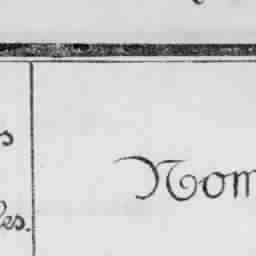 s
les.
Nom